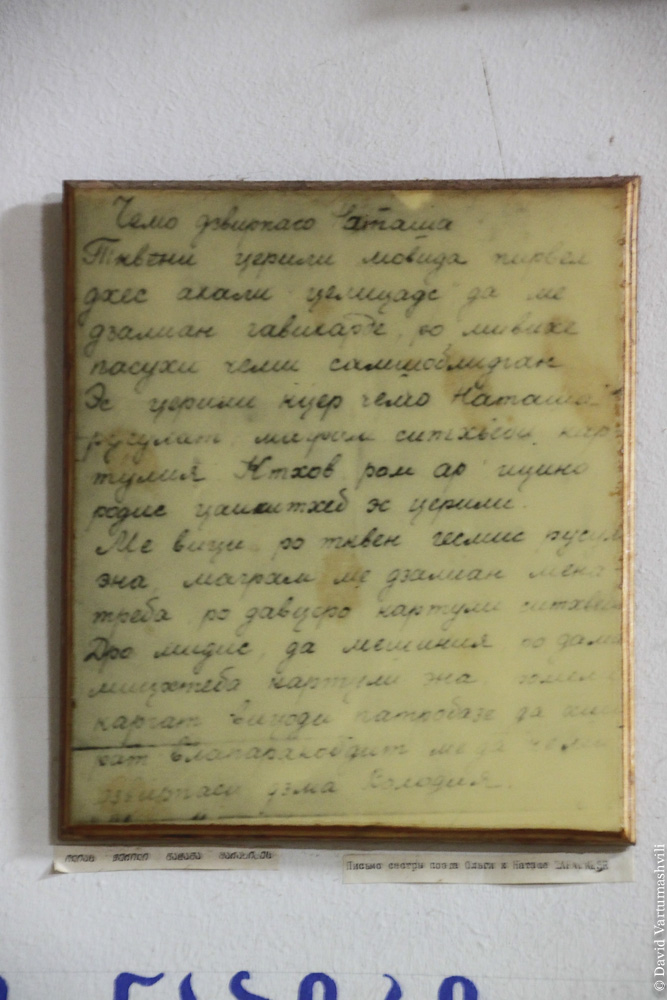 Чемо дзвирпасо Наташа
Тквени церили мовида пирвел
дхес ахали целицадс да ме
дзалиан гавихарде, ро мивихе
пасухи чеми самшоблидган
Эс церили нцер чемо Наташа
русулат, маграм ситхвеби карт
тулия Нтхов ром ар ицино
родис цаикитхеб эс церили.
Ме вици ро тквен гесмис русул
эна, маграм ме дзалиан мена
треба ро давцеро картули ситхвеби
Дро мидис, да мешиния ро дама
мицхтеба картули эна
каргат вицоди патробазе да
рат влапаракобдит ме да чеми
дзвирпаси дзма Володия.
Письмо сестры поэта Ольги к Наташе
© David Vartumashvili